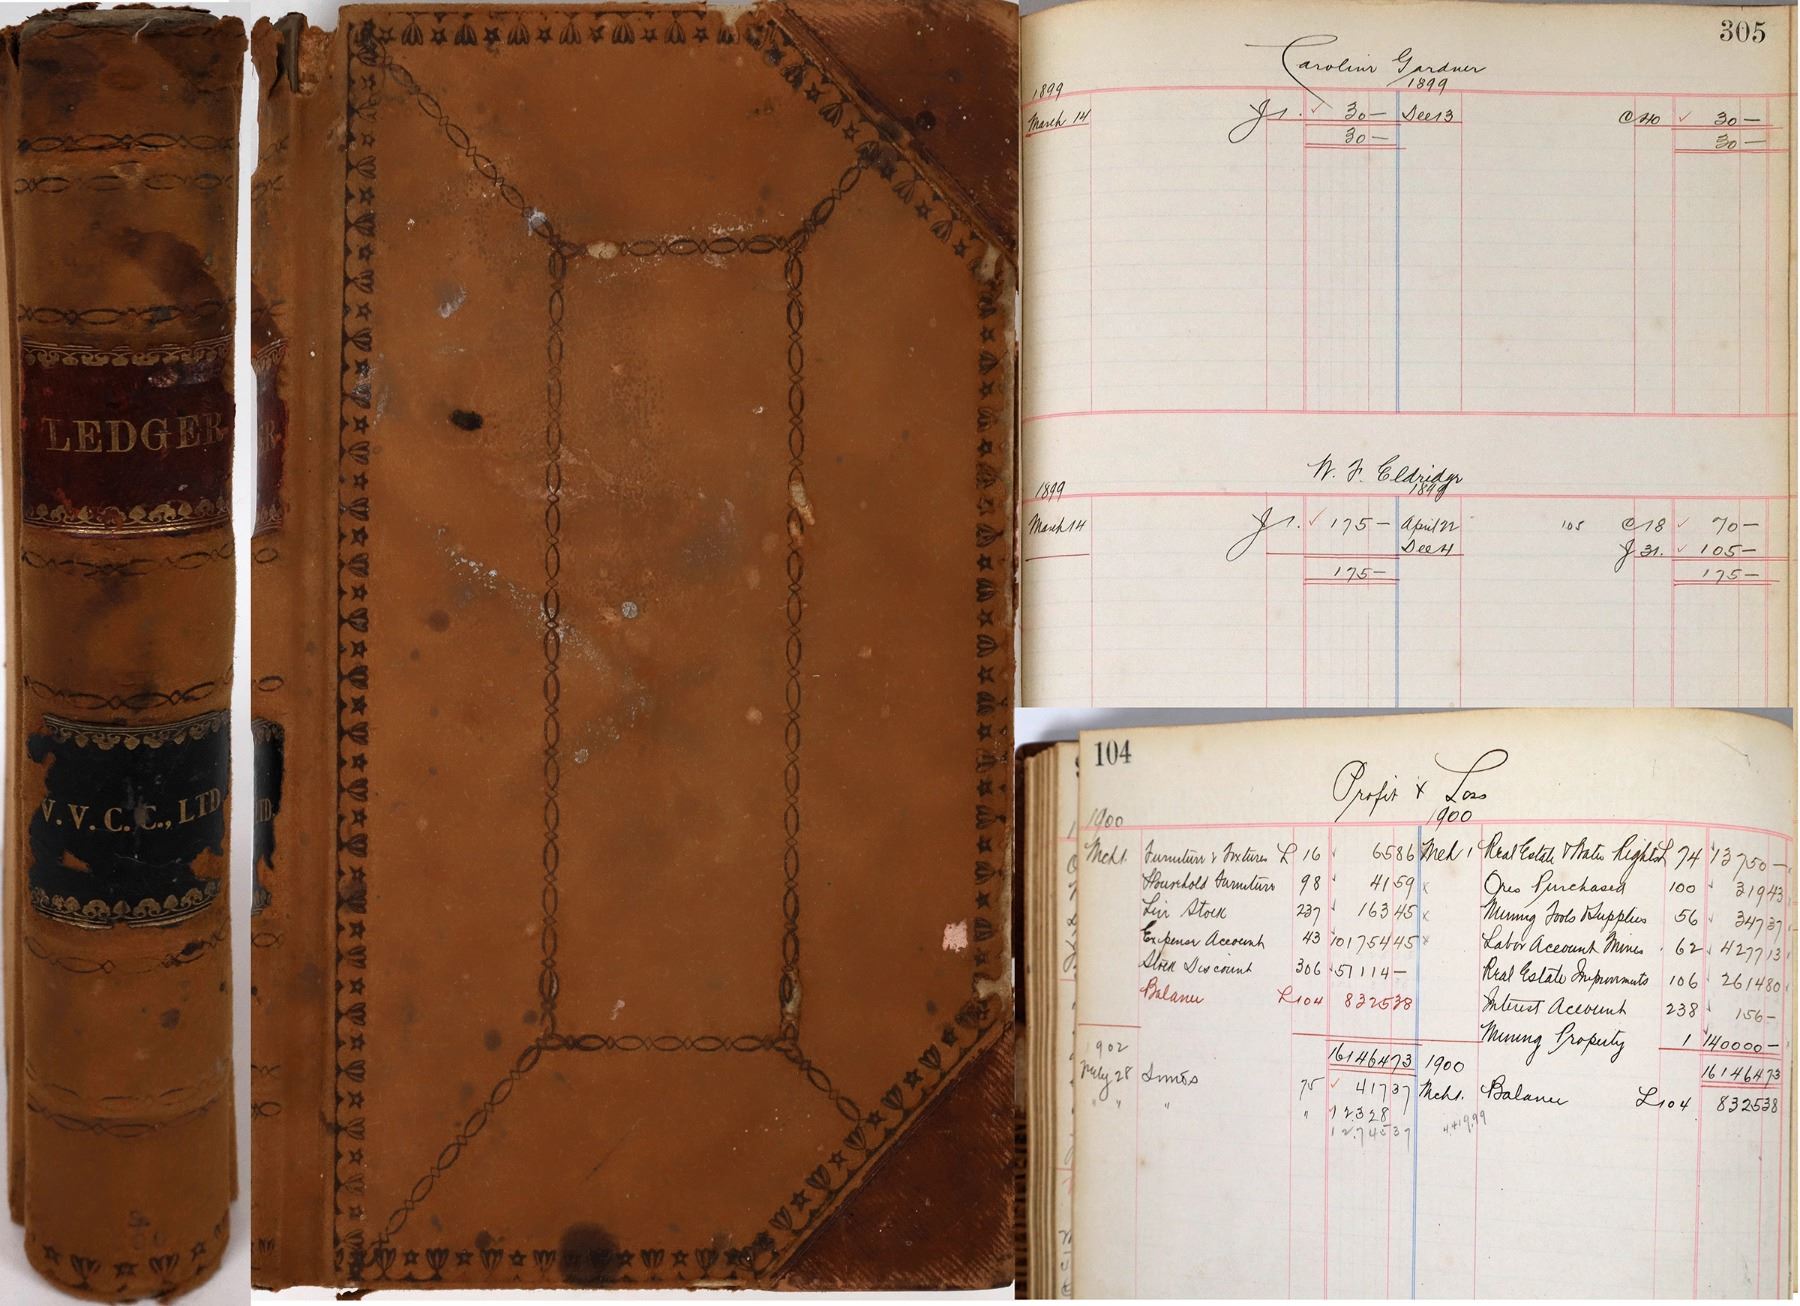 LEDGER
V. V. C. C., LTD.
R
TD.
305
Caroline Gardner
1899 1899
March 14 J1. ✓ 30 — Dec 13 C 40 ✓ 30 —
30 — 30 —
W. F. Eldridge
1899 1899
March 14 J1. ✓ 175 — April 22 105 C 18 ✓ 70 —
Dec 4 J 31. ✓ 105 —
175 — 175 —
104
Profit & Loss
1900 1900
Mch 1. Furniture & Fixtures L 16 ✓ 65 86 Mch 1 Real Estate & Water Rights L 74 ✓ 13750 —
Household Furniture 98 ✓ 41 59 Ores Purchased 100 ✓ 319 43
Live Stock 237 ✓ 163 45 Mining Tools & Supplies 56 ✓ 347 37
Expense Account 43 ✓ 101754 45 Labor Account Mines 62 ✓ 4277 13
Stock Discount 306 ✓ 51114 — Real Estate Improvments 106 ✓ 2614 80
Balance L 104 8325 38 Interest Account 238 ✓ 156 —
Mining Property 1 ✓ 140000 —
161464 73 1900 161464 73
1902
July 28 75 ✓ 417 37 Mch 1. Balance L 104 8325 38
" " " " 12 328
12,745 37